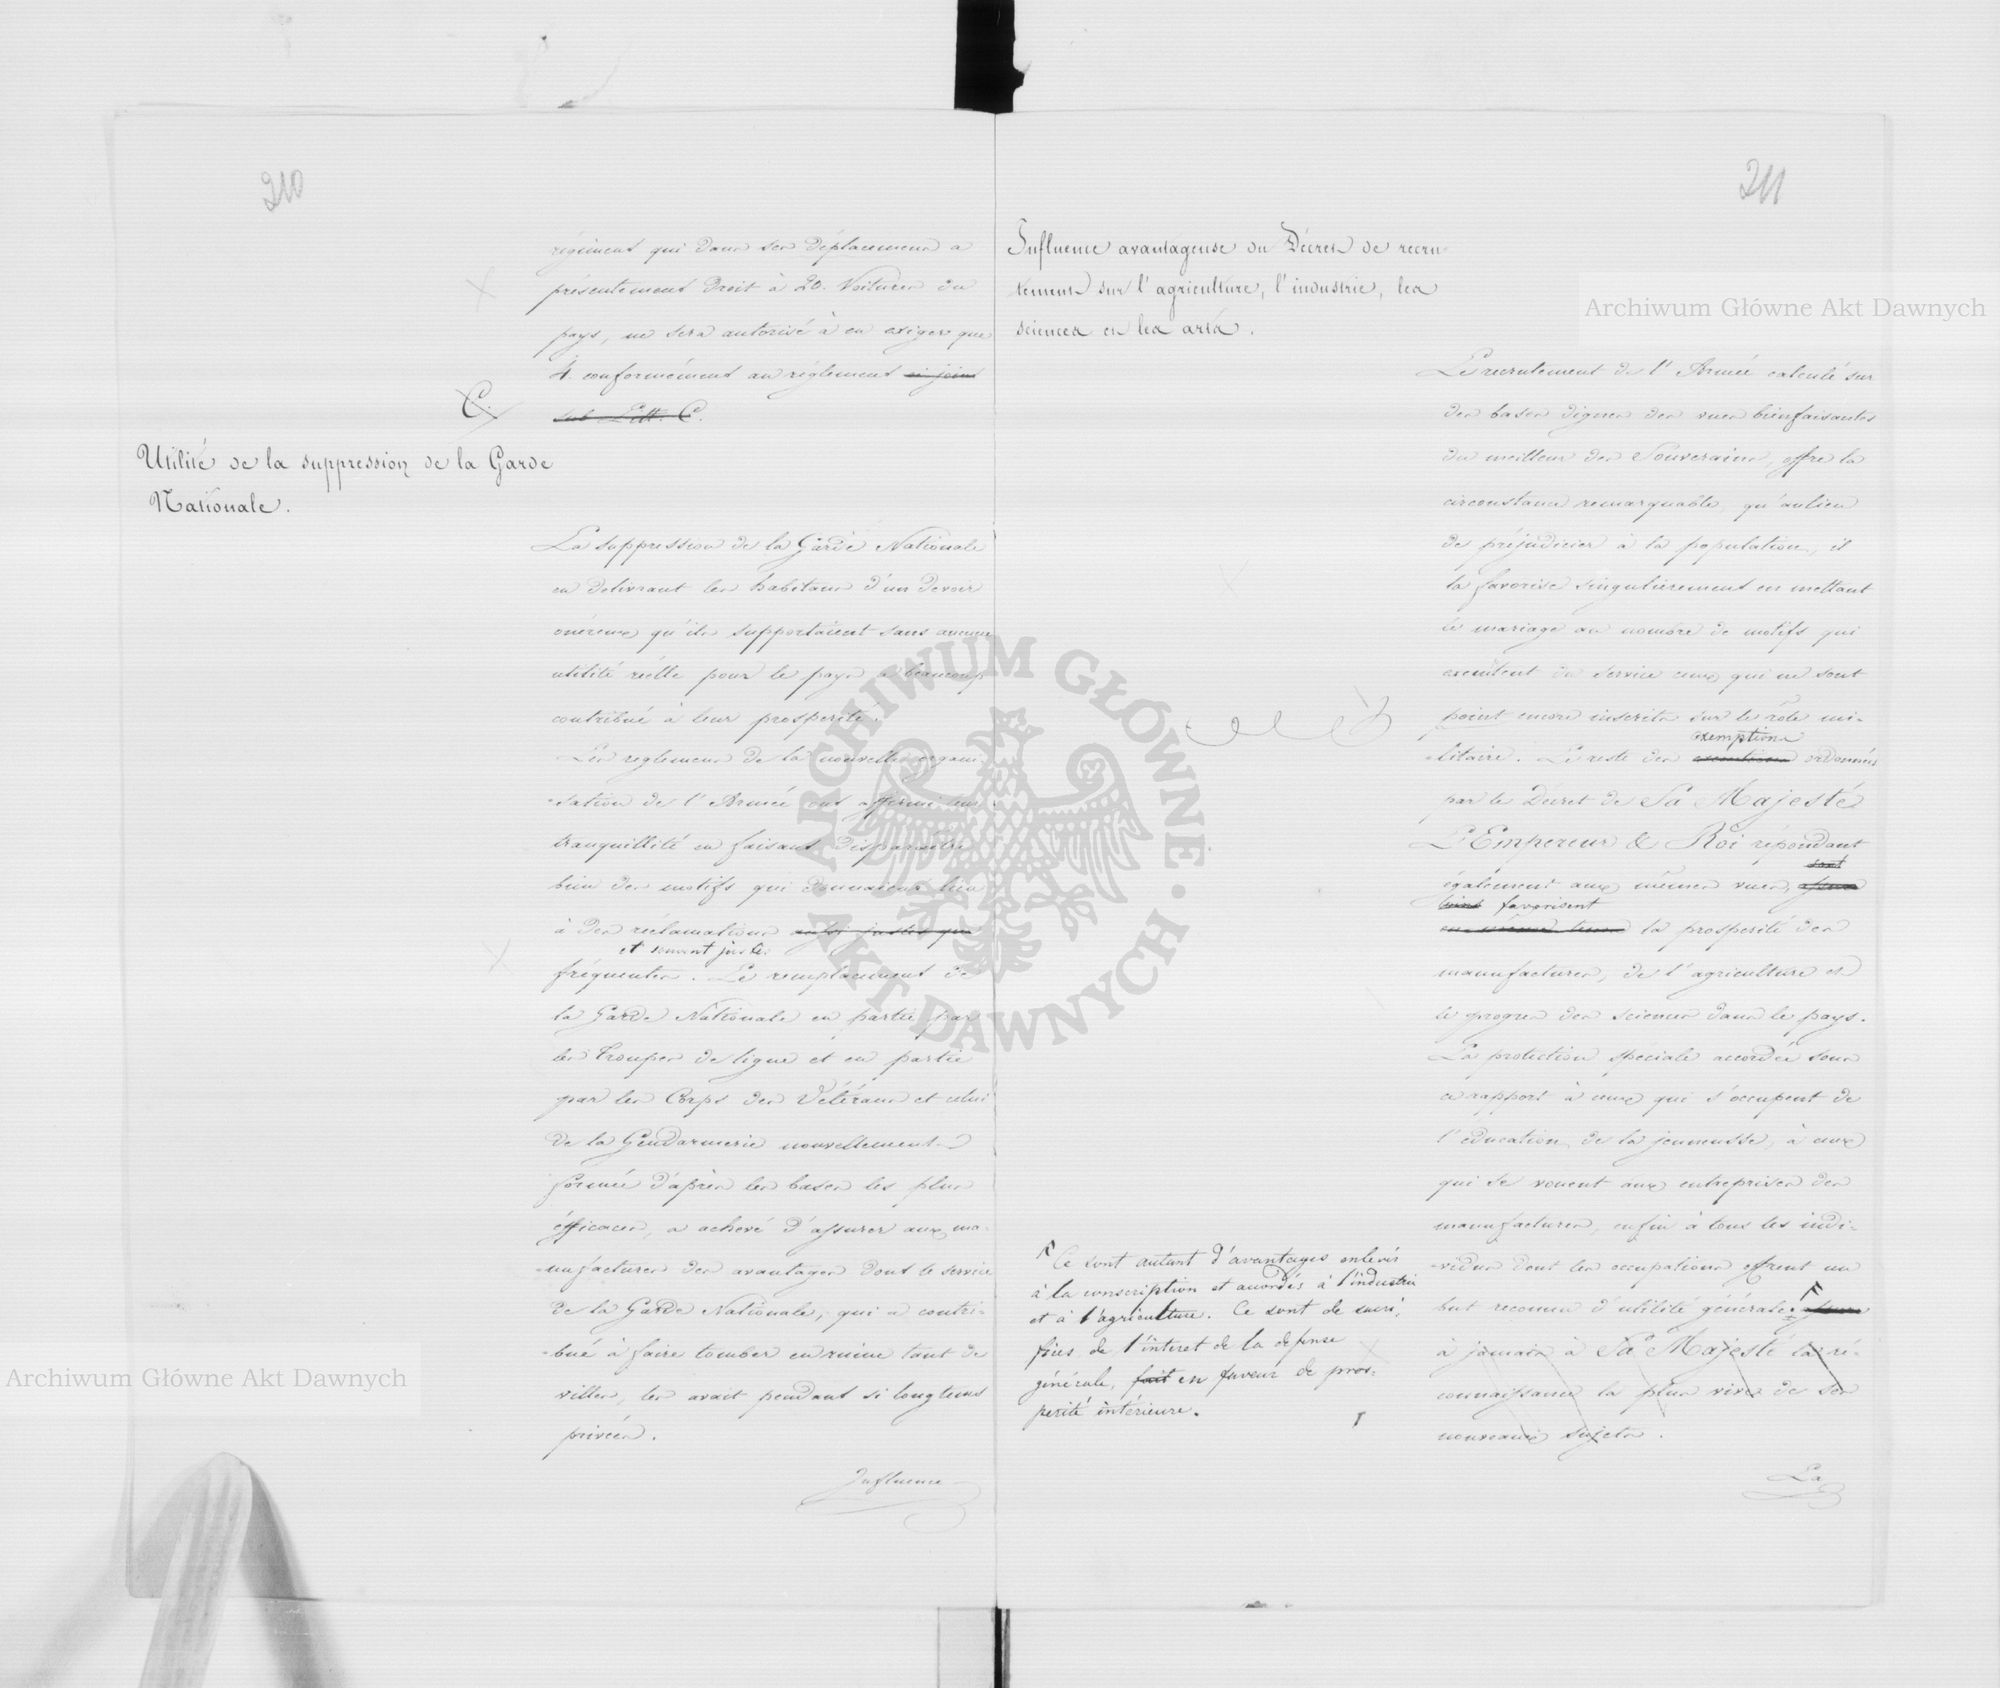 210
régiment qui dans ses déplacemens a
présentement Droit à 20. Voitures du
pays, ne sera autorisé à en exiger que
4. conformément au réglement ci joint
sub Litt. C.
C.
Utilité de la suppression de la Garde
Nationale.
La suppression de la Garde Nationale
en delivrant les habitans d'un devoir
onéreux qu'ils supportaient sans aucune
utilité réelle pour le pays a beaucoup
contribué à leur prosperité.
Les reglemens de la nouvelle organi
-sation de l'Armée ont affermi leur
tranquillité en faisant disparaître
bien des motifs qui donnaient lieu
à des réclamations aussi justes que
et souvent justes
fréquentes. Le remplacement de
la Garde Nationale en partie par
les Troupes de ligne et en partie
par les Corps des Vétérans et celui
de la Gendarmerie nouvellement
formée d'après les bases les plus
éfficaces, a achevé d'assurer aux ma-
-nufactures des avantages dont le service
de la Garde Nationale, qui a contri-
-bué à faire tomber en ruine tant de
villes, les avait pendant si longtems
privées.
Influence
211
Influence avantageuse du Décret de recru-
tement sur l'agriculture, l'industrie, les
sciences et les arts.
Le recrutement de l'Armée calculé sur
des bases dignes des vues bienfaisantes
du meilleur des Souverains, offre la
circonstance remarquable, qu'aulieu
de préjudicier à la population, il
la favorise singulièrement en mettant
le mariage au nombre de motifs qui
exemtent du service ceux qui ne sont
point encore inscrits sur le rôle mi-
exemptions
-litaire. Le reste des ordonnés
par le Décret de Sa Majesté
L'Empereur & Roi répondant
sont
également aux mêmes vues,
favorisent
en même tems la prosperité des
manufactures, de l'agriculture et
le progres des sciences dans le pays.
La protection spéciale accordée sous
ce rapport à ceux qui s'occupent de
l'éducation de la jeunesse, à ceux
qui se vouent aux entreprises des
manufactures, enfin à tous les indi-
-vidus dont les occupations offrent un
but reconnu d'utilité générale. assure
à jamais à Sa Majesté la ré-
connaissance la plus vive de ses
nouveaux sujets.
La
Ce sont autant d'avantages enlevés
à la conscription et accordés à l'industrie
et à l'agriculture. Ce sont de sacri-
fices de l'interet de la defense
générale, fait en faveur de pros-
perité intérieure.
Archiwum Główne Akt Dawnych
Archiwum Główne Akt Dawnych
ARCHIWUM GŁÓWNE · AKT DAWNYCH ·